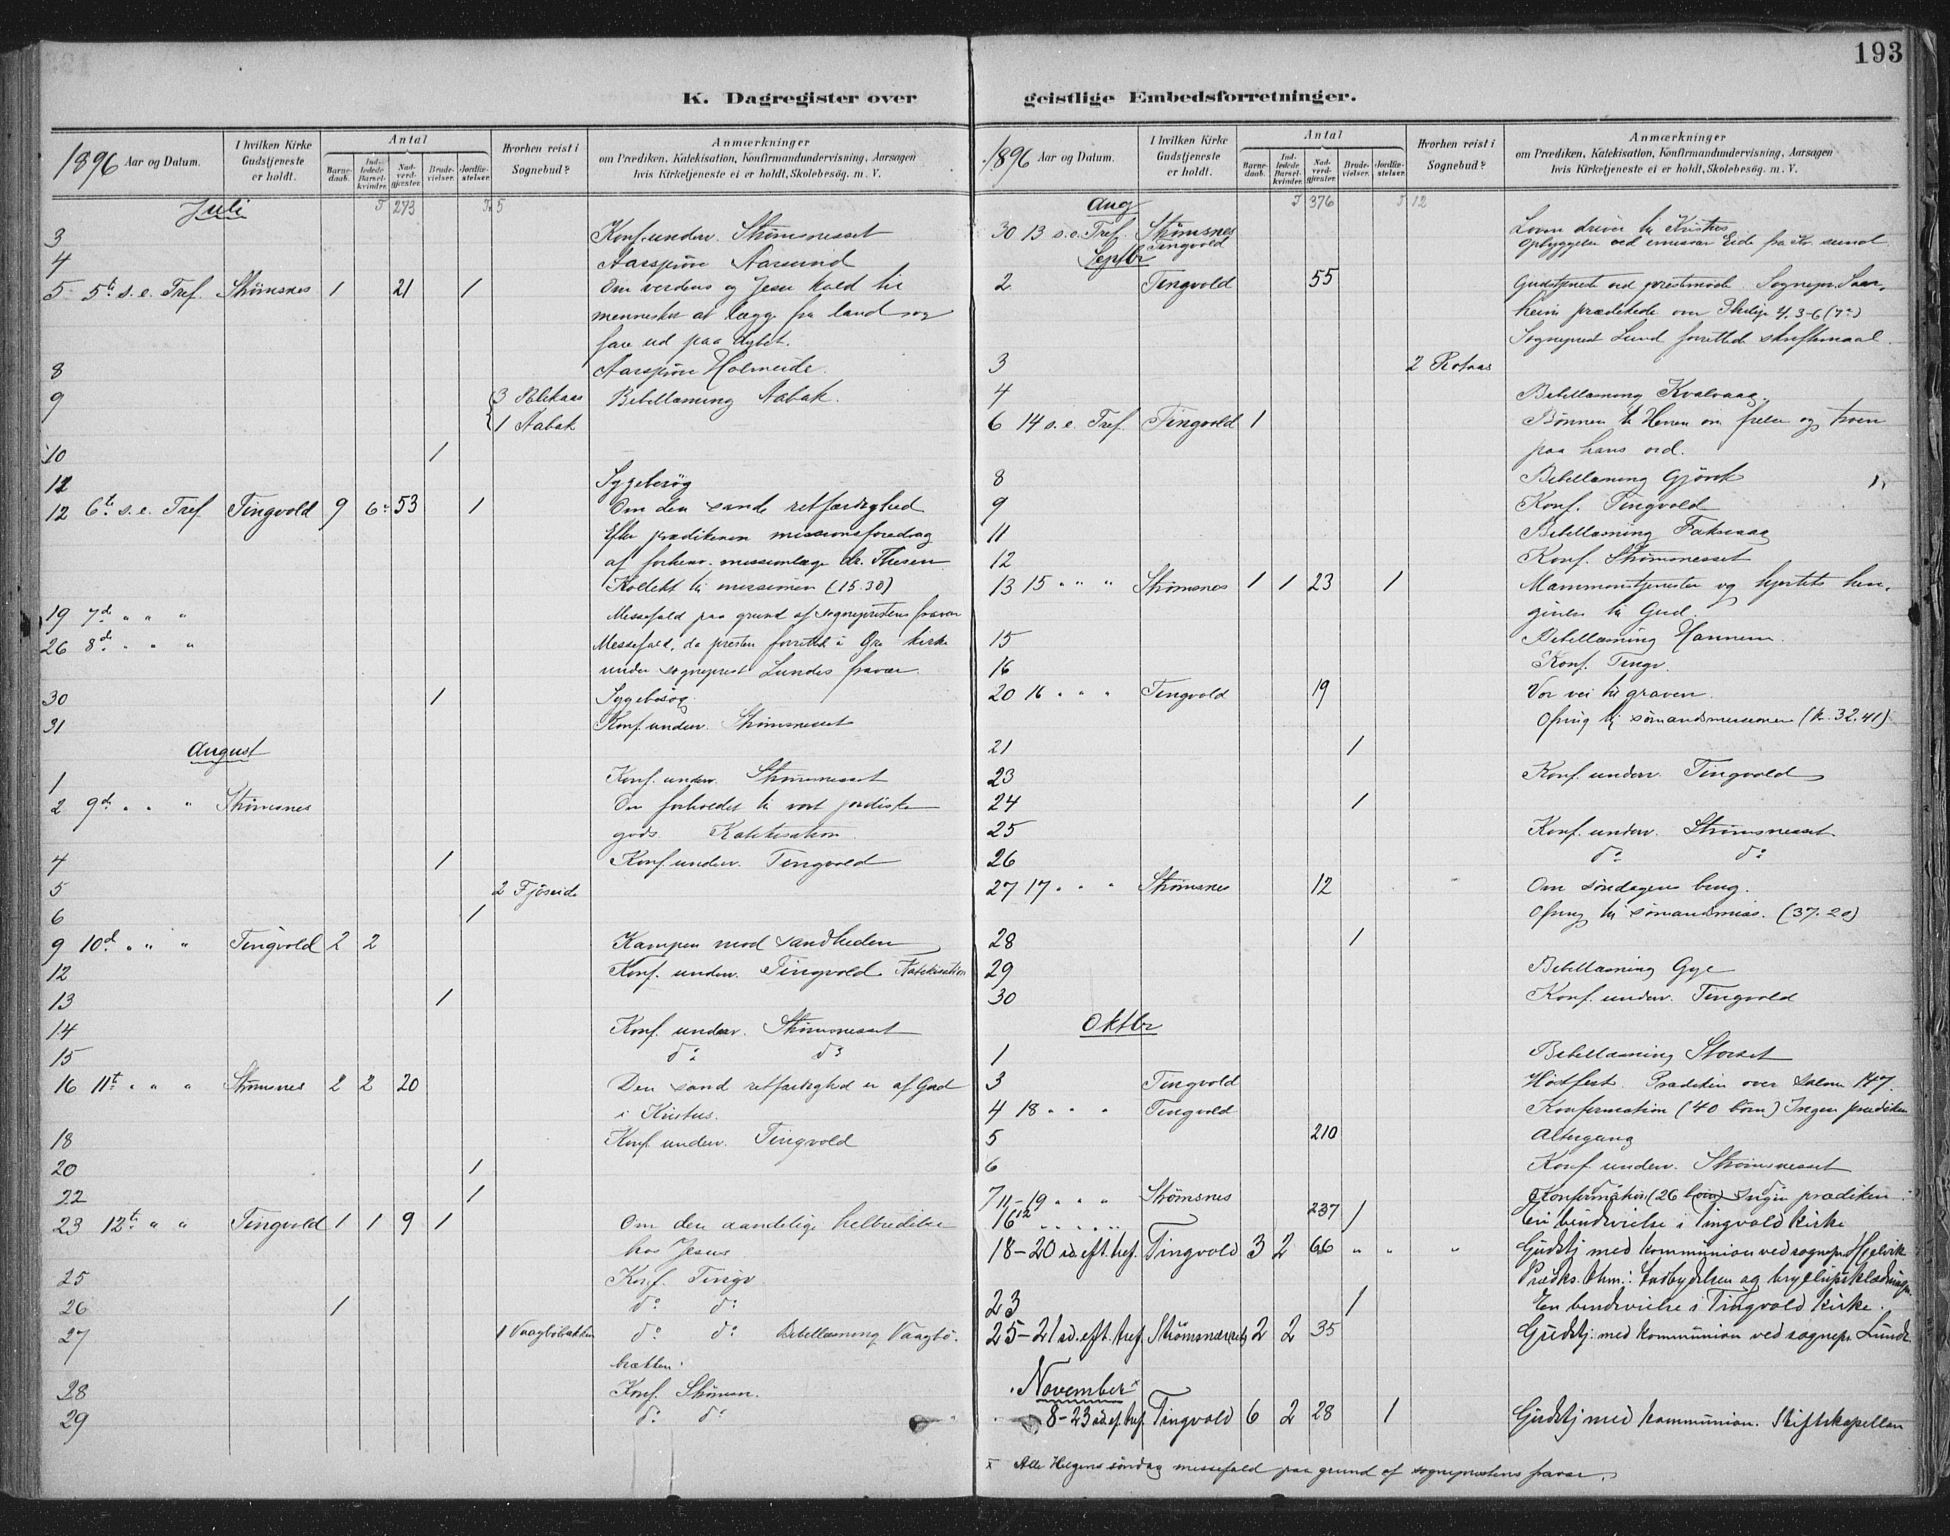 193
K. Dagregister over
1896 Aar og Datum.
I hvilken Kirke Gudstjeneste er holdt.
Antal
Barnedaab.
Indledede Barselkvinder.
Nadverdgjæster.
Brudevielser.
Jordfæstelser.
Hvorhen reist i Sognebud?
Anmærkninger
om Prædiken, Katekisation, Konfirmandundervisning, Aarsagen
hvis Kirketjeneste ei er holdt, Skolebesøg. m. V.
Juli T 273 T. 5
3 Konf. underv. Strømsnesset
4 Aarsprøve Aarsund
5 5te s. e. Tref. Strømsnes 1 21 1 Om verdens og Jesu kald til
mennesker at lægge fra land og
fare ud paa dybet.
8 Aarsprøve Holmeide.
9 3 Blekaas Bibellæsning Aabak.
1 Aabak
10 1
12 Sygebesøg
12 6te s. e. Tref Tingvold 9 6 53 1 Om den sande retfærdighed
Efter prædikenen missionsforedrag
af forhenv. missionslæge dr. Thesen
Kollekt til missionen (15.30)
19 7de " " " Messefald paa grund af sogneprestens fravær
26 8de " " " Messefald, da presten forrettet i Øre kirke
under sogneprest Lundes fravær.
30 1 Sygebesøg
31 Konf. underv. Strømsnesset
August
1 Konf. underv. Strømsnesset
2 9de " " " Strømsnes Om forholdet til vort jordiske
gods. Katekisation
4 1 Konf. underv. Tingvold
5 2 Fjøseide
6 1
9 10de " " " Tingvold 2 2 Kampen mod sandheden
12 Konf. underv. Tingvold Katekisation
13 1
14 Konf. underv. Strømsnesset
15 do do
16 11te " " " Strømsnes 2 2 20 Den sand retfærdighed er af Gud
i Kristus.
18 Konf. underv. Tingvold
20 1
22 1
23 12te " " Tingvold 1 1 9 1 Om den aandelige helbredelse
hos Jesus
25 Konf. Tingv.
26 1 do do
27 1 Vaagbøbakken do do Bibellæsning Vaagbø-
bakken.
28 Konf. Strømsn.
29 do do
geistlige Embedsforretninger.
1896 Aar og Datum.
I hvilken Kirke Gudstjeneste er holdt.
Antal
Barnedaab.
Indledede Barselkvinder.
Nadverdgjæster.
Brudevielser.
Jordfæstelser.
Hvorhen reist i Sognebud?
Anmærkninger
om Prædiken, Katekisation, Konfirmandundervisning, Aarsagen
hvis Kirketjeneste ei er holdt, Skolebesøg. m. V.
Aug T 376 T 12
30 13 s. e. Tref. Strømsnes Loven driver til Kristus
Tingvold Opbyggelse ved emissær Eide fra Kr. sund
Septbr
2 Tingvold 55 Gudstjeneste ved prestemøde. Sognepr. Saar-
heim prædikede over Philip 4. 3-6 (7)
Sogneprest Lund forrettede skriftemaal.
3 2 Rotaas
4 Bibellæsning Kvalvaag.
6 14 s. e. Tref. Tingvold 1 Bønnen til Herren om frelse og troen
paa hans ord.
8 Bibellæsning Gjørsk 1.
9 Konf. Tingvold
11 Bibellæsning Faksvaag
12 Konf. Strømsnesset
13 15 " " " Strømsnes 1 1 23 1 Mammonstjenesten og hjertets hen-
givelse til Gud.
15 Bibellæsning Hannem.
16 Konf. Tingv.
20 16 " " " Tingvold 19 Vor vei til graven.
Ofring til sømandsmissionen (k. 32.41)
21 1
23 Konf. underv. Tingvold
24 1
25 Konf. underv. Strømsnesset.
26 do do
27 17 " " " Strømsnes 12 Om søndagens brug.
Ofring til sømandsmiss. (37.20)
28 1
29 Bibellæsning Gyl
30 Konf. underv. Tingvold
Oktbr
1 Bibellæsning Storset
3 Tingvold Høstfest. Prædiken over Salme 147.
4 18 " " " Tingvold Konfirmation (40 børn) Ingen prædiken
5 210 Altergang
6 Konf. underv. Strømsnesset
7 do
11-19 " " " Strømsnes Konfirmation (26 børn) Ingen prædiken
12 " " " 237
16 1 En brudevielse i Tingvold Kirke
18-20 sd. eft. tref. Tingvold 3 2 66 " " " Gudstj. med kommunion ved sognepr. Hjelvik
Prædks. thm.: Indbydelsen og bryllupsklædningen.
23 1 En brudevielse i Tingvold Kirke.
25-21 sd. eft. tref. Strømsnæsset 2 2 35 Gudstj. med kommunion ved sognepr. Lund.
November x
8-23 sd. ef. tref. Tingvold 6 2 28 1 Gudstj. med kommunion. Stiftskapellan
x Alle Helgens søndag messefald paa grund af sogneprestens fravær.